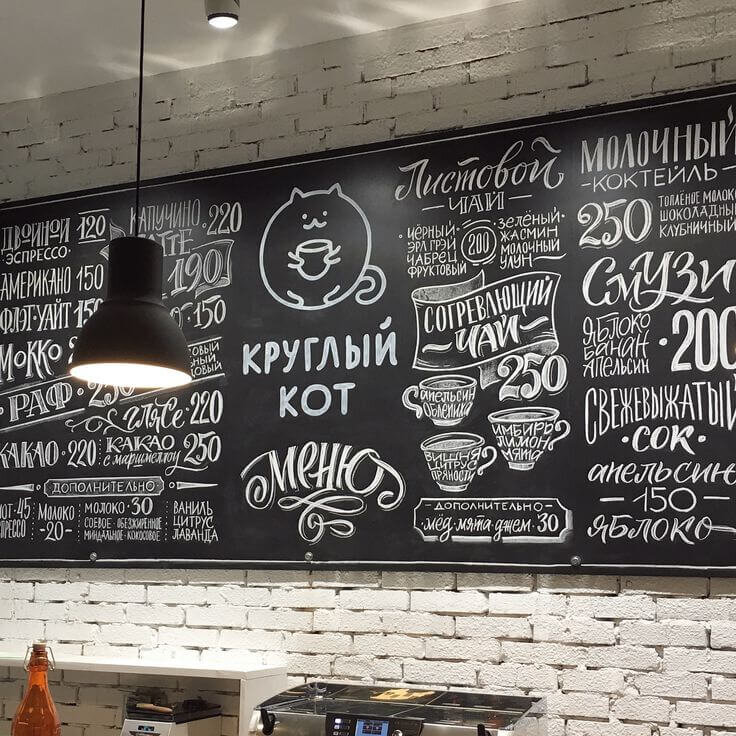 ДВОЙНОЙ 120
ЭСПРЕССО
АМЕРИКАНО 150
ФЛЭТ-УАЙТ 150
МОККО
РАФ
КАКАО · 220
КАПУЧИНО 220
190
150
гляссе · 220
КАКАО
с маршмеллоу 250
ДОПОЛНИТЕЛЬНО
45
МОЛОКО
-20-
МОЛОКО · 30
СОЕВОЕ · ОБЕЗЖИРЕННОЕ
МИНДАЛЬНОЕ · КОКОСОВОЕ
ВАНИЛЬ
ЦИТРУС
ЛАВАНДА
КРУГЛЫЙ
КОТ
МЕНЮ
Листовой
ЧАЙ
ЧЁРНЫЙ
ЭРЛ ГРЭЙ
ЧАБРЕЦ
ФРУКТОВЫЙ
200
ЗЕЛЁНЫЙ
ЖАСМИН
МОЛОЧНЫЙ
УЛУН
СОГРЕВЛЮЩИЙ
ЧАЙ
250
АПЕЛЬСИН
ОБЛЕПИХА
ИМБИРЬ
ЛИМОН
МЯТА
ВИШНЯ
ЦИТРУС
ПРЯНОСТИ
ДОПОЛНИТЕЛЬНО
· мёд · мята · джем · 30
МОЛОЧНЫЙ
КОКТЕЙЛЬ
250
ТОПЛЁНОЕ МОЛОКО
ШОКОЛАДНЫЙ
КЛУБНИЧНЫЙ
Смузи
ЯБЛОКО
БАНАН
АПЕЛЬСИН
· 200
СВЕЖЕВЫЖАТЫЙ
· СОК ·
апельсин
— 150 —
ЯБЛОКО